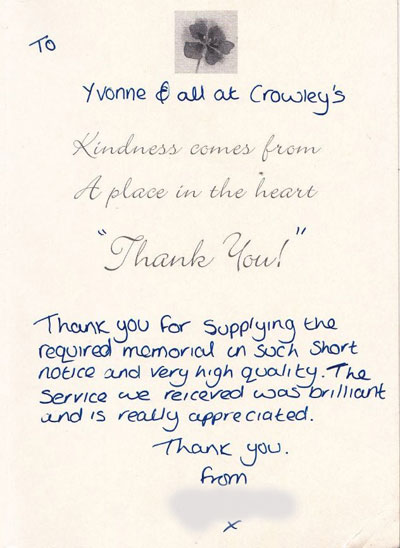 To
Yvonne & all at Crowley's
Kindness comes from
A place in the heart
"Thank You!"
Thank you for supplying the
required memorial in such short
notice and very high quality. The
service we reiceved was brilliant
and is really appreciated.
Thank you.
from
x